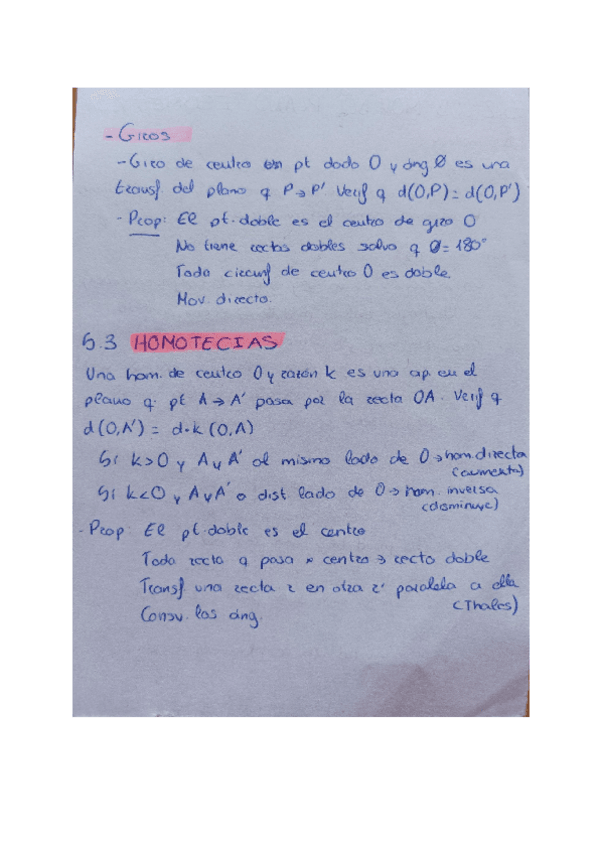 - Giros
- Giro de centro un pt dado O y áng Ø es una
transf del plano q P→P' Verif q d(O,P)=d(O,P')
- Prop: El pt. doble es el centro de giro O
No tiene rectas dobles salvo q Ø=180°
Toda circunf de centro O es doble.
Mov. directo.
5.3 HOMOTECIAS
Una hom. de centro O y razón k es una ap. en el
plano q. pt A→A' pasa por la recta OA. Verif q
d(O,A') = d·k(O,A)
Si k>0 y A y A' al mismo lado de O→hom.directa
(aumenta)
Si k<0 y A y A' a dist. lado de O→hom. inversa
(disminuye)
- Prop: El pt.doble es el centro
Toda recta q pasa x centro → recta doble
Transf. una recta r en otra r' paralela a ella
(Thales)
Consv. los áng.